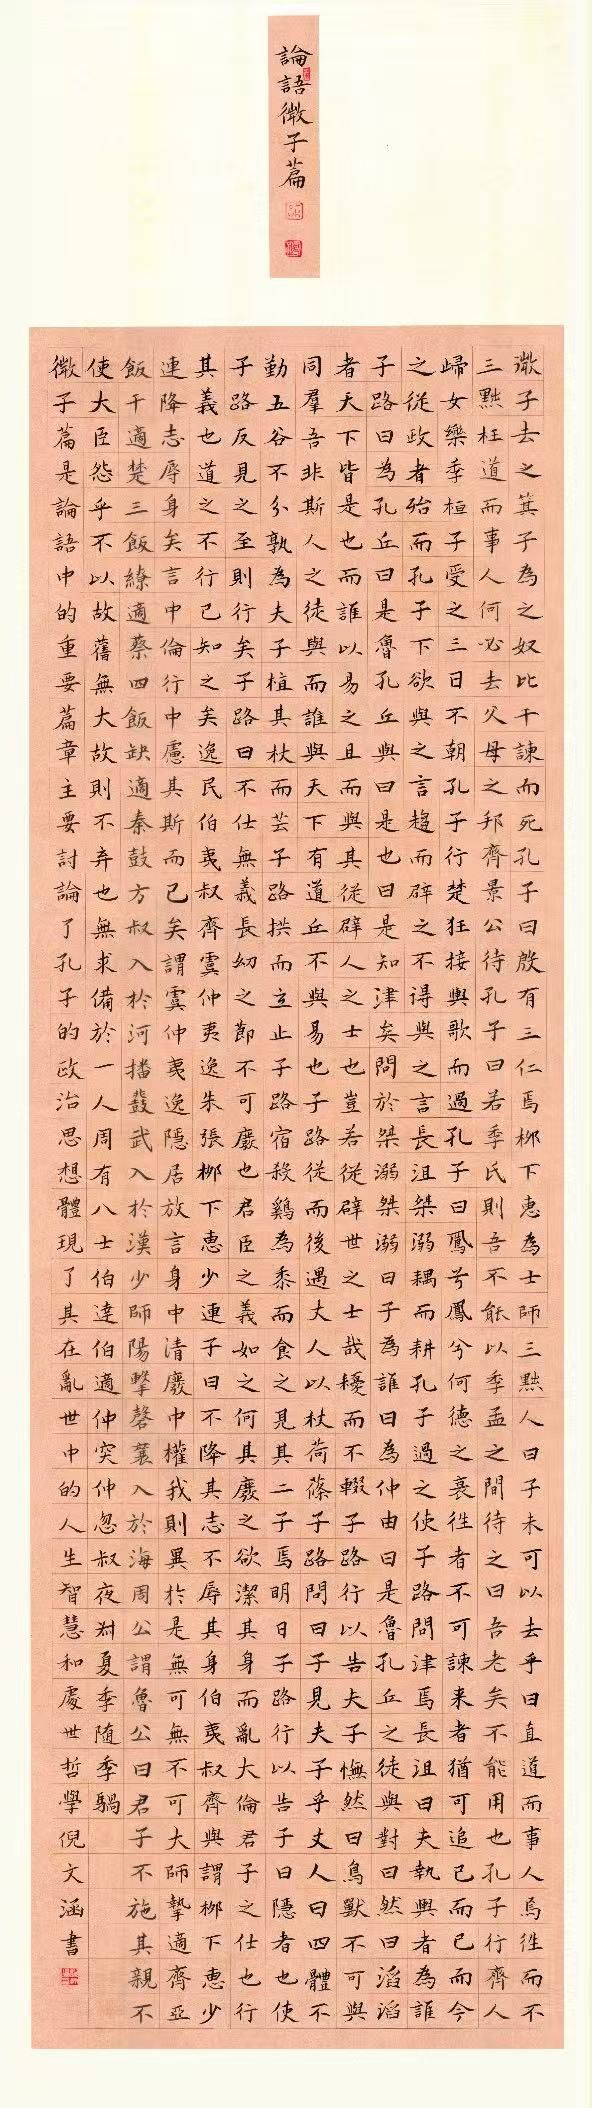 論語微子篇
微子去之箕子為之奴比干諫而死孔子曰殷有三仁焉柳下惠為士師三黜人曰子未可以去乎曰直道而事人焉徃而不
三黜枉道而事人何必去父母之邦齊景公待孔子曰若季氏則吾不能以季孟之間待之曰吾老矣不能用也孔子行齊人
歸女樂季桓子受之三日不朝孔子行楚狂接輿歌而過孔子曰鳳兮鳳兮何德之衰徃者不可諫来者猶可追已而已而今
之從政者殆而孔子下欲與之言趨而辟之不得與之言長沮桀溺耦而耕孔子過之使子路問津焉長沮曰夫執輿者為誰
子路曰為孔丘曰是魯孔丘與曰是也曰是知津矣問於桀溺桀溺曰子為誰曰為仲由曰是魯孔丘之徒與對曰然曰滔滔
者天下皆是也而誰以易之且而與其從辟人之士也豈若從辟世之士哉耰而不輟子路行以告夫子憮然曰鳥獸不可與
同羣吾非斯人之徒與而誰與天下有道丘不與易也子路從而後遇丈人以杖荷蓧子路問曰子見夫子乎丈人曰四體不
勤五谷不分孰為夫子植其杖而芸子路拱而立止子路宿殺鷄為黍而食之見其二子焉明日子路行以告子曰隱者也使
子路反見之至則行矣子路曰不仕無義長幼之節不可廢也君臣之義如之何其廢之欲潔其身而亂大倫君子之仕也行
其義也道之不行已知之矣逸民伯夷叔齊虞仲夷逸朱張柳下惠少連子曰不降其志不辱其身伯夷叔齊與謂柳下惠少
連降志辱身矣言中倫行中慮其斯而已矣謂虞仲夷逸隱居放言身中清廢中權我則異於是無可無不可大師摯適齊亞
飯干適楚三飯繚適蔡四飯缺適秦鼓方叔入於河播鼗武入於漢少師陽擊磬襄入於海周公謂魯公曰君子不施其親不
使大臣怨乎不以故舊無大故則不弃也無求備於一人周有八士伯達伯適仲突仲忽叔夜叔夏季随季騧
微子篇是論語中的重要篇章主要討論了孔子的政治思想體現了其在亂世中的人生智慧和處世哲學倪文涵書